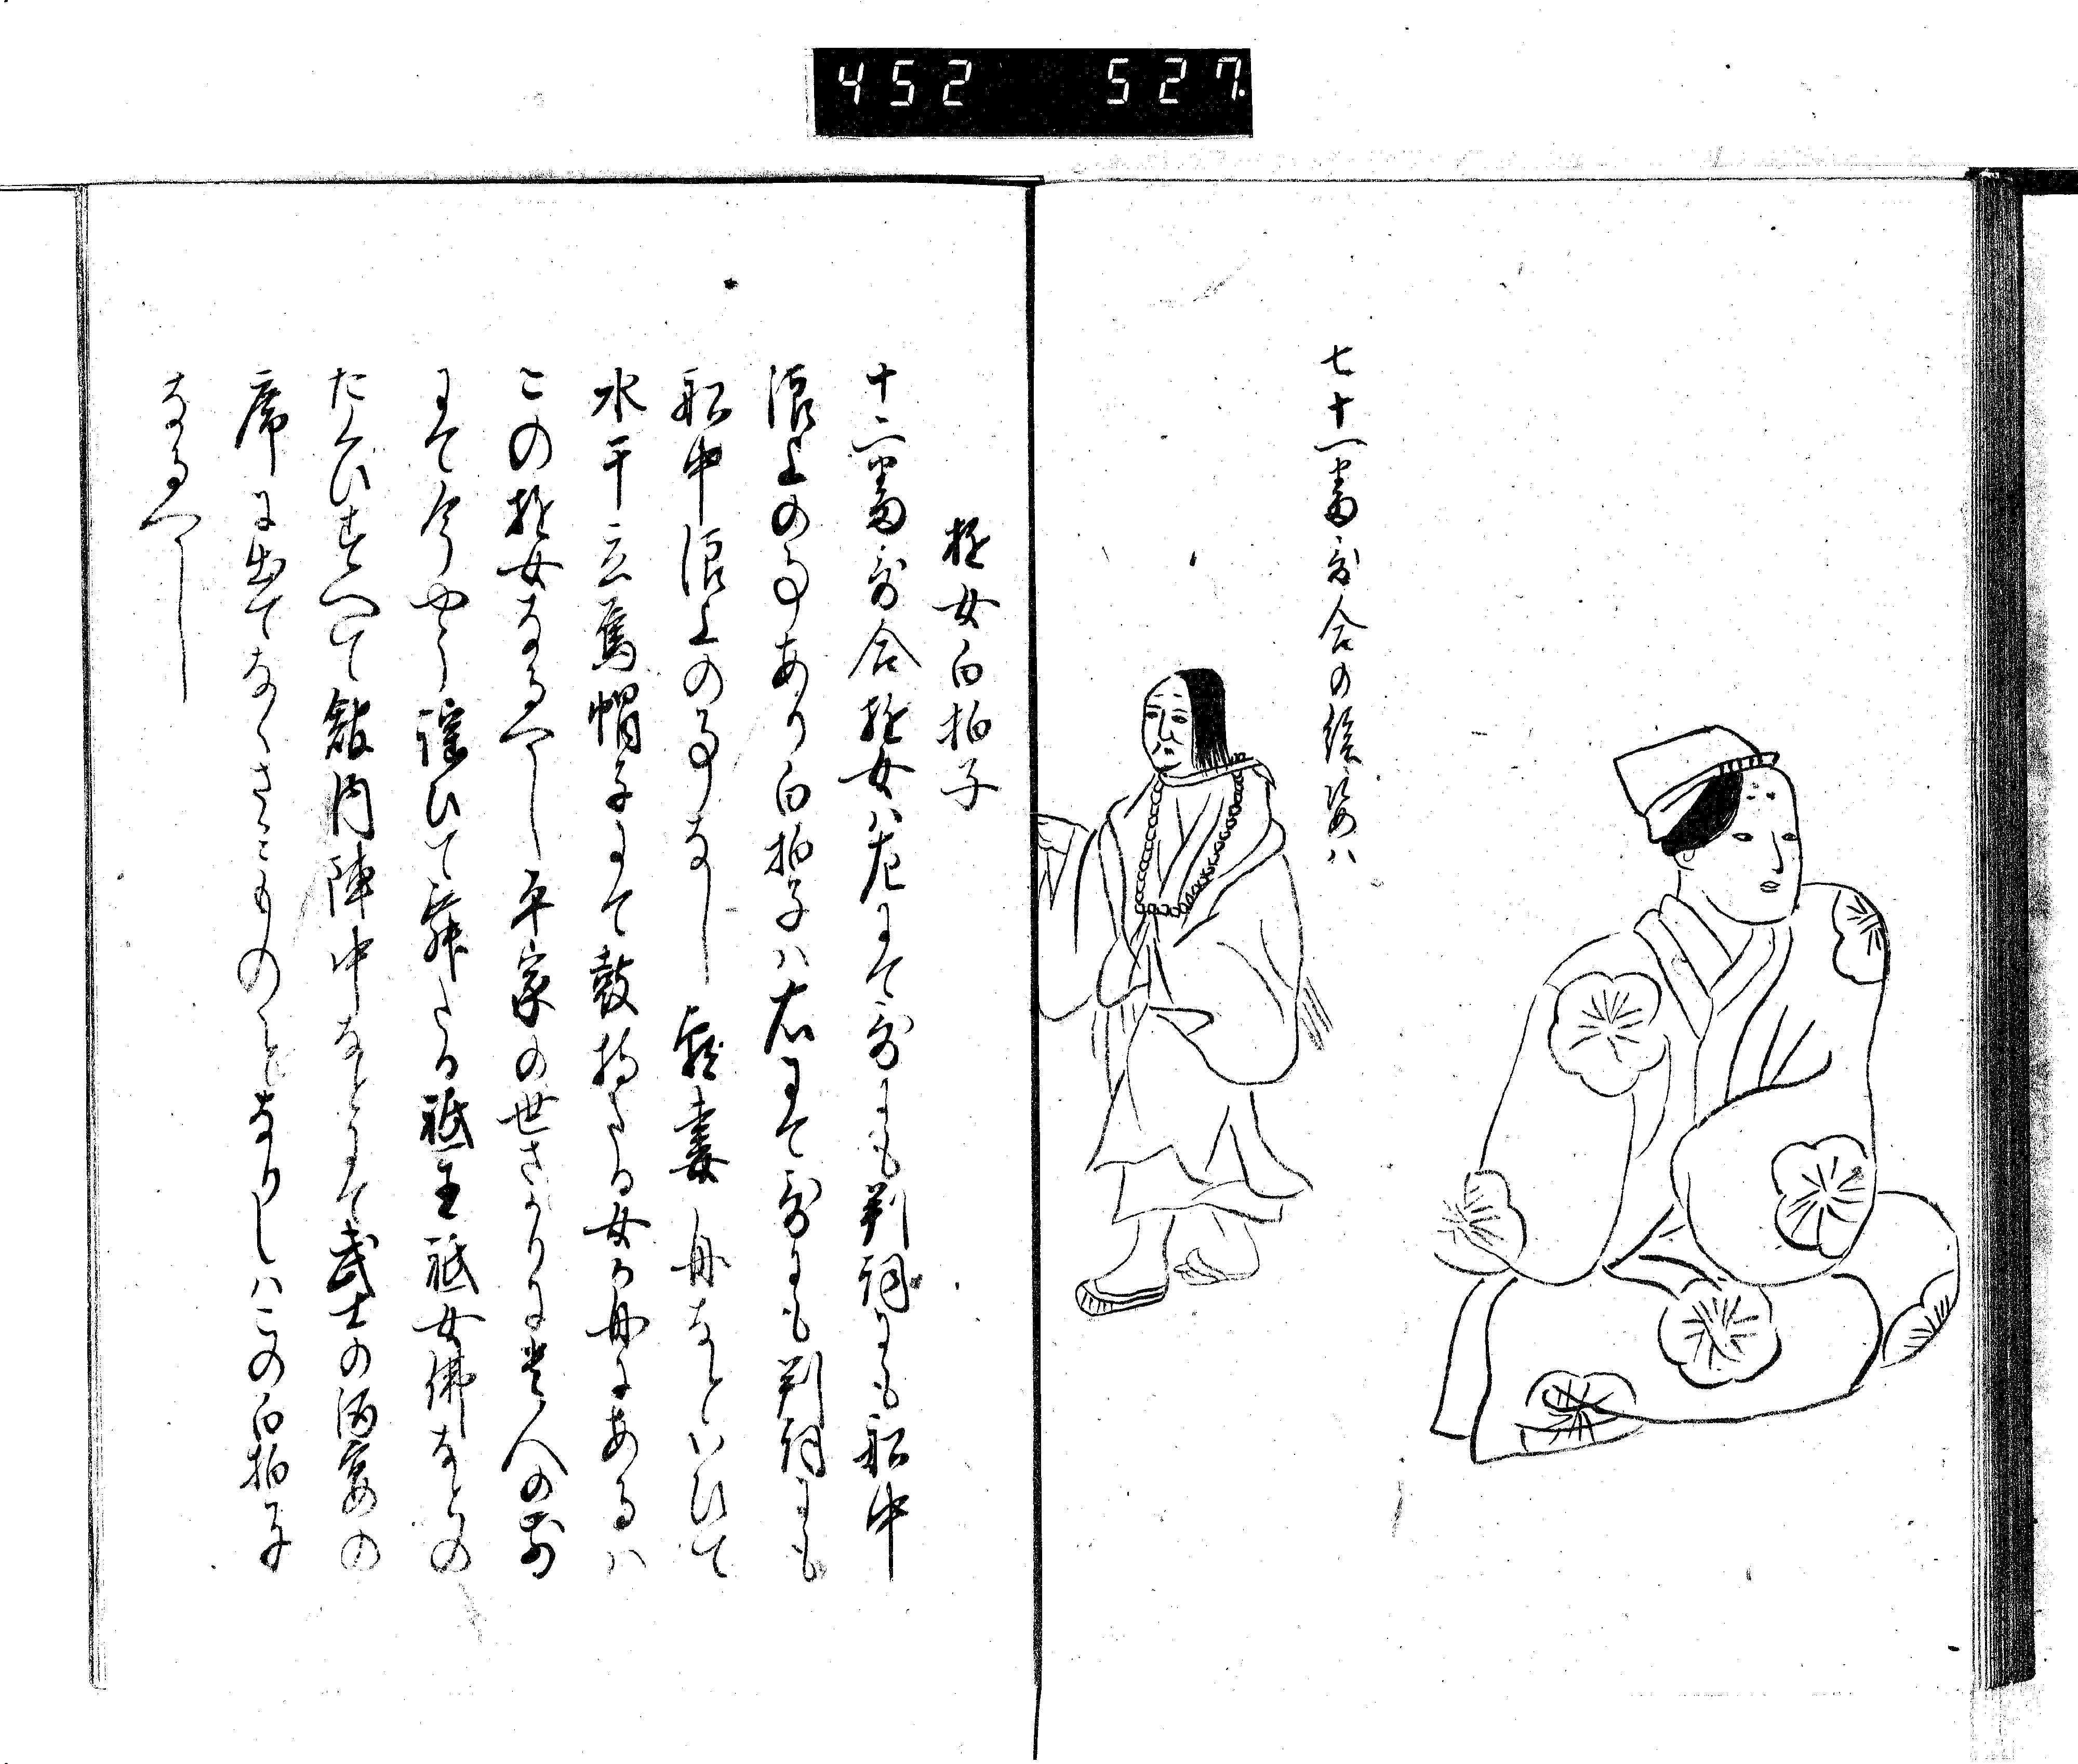 452 527
七十一番哥合の絵姿ハ
遊女白拍子
十二番哥合遊女ハ左にて哥にも判詞にも船中
浪上の事あり白拍子ハ右にて哥にも判詞にも
船中浪上の事なし 妻 舟なといひて
水干立烏帽子にて鼓持たる女の舟にあるハ
この遊女なるへし平家の世さかりに貴人の前
にて今やう謡ひて舞たる祇王祇女佛なとの
たくひすへて館内陣中なとにて武士の酒宴の
席に出てなくさみものとなりしハこの白拍子
なるへし